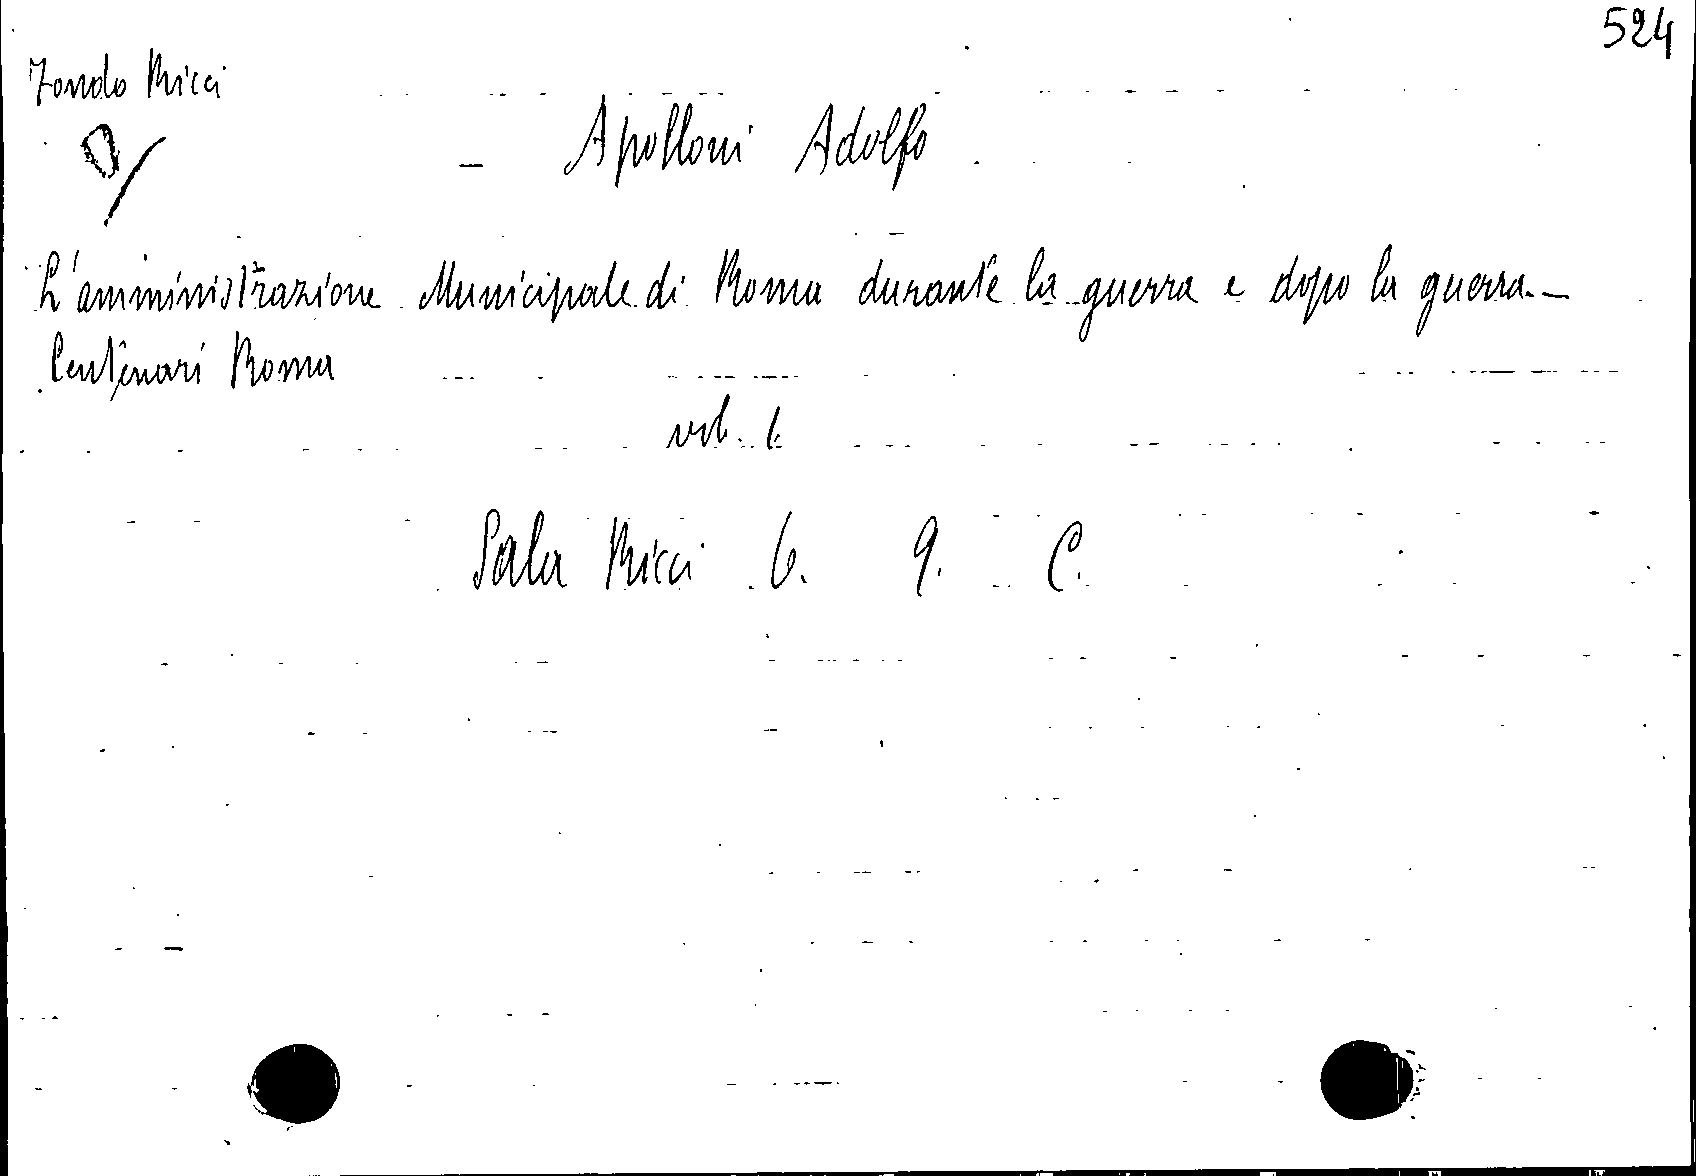 524
Fondo Ricci
Apolloni Adolfo
L'amministrazione Municipale di Roma durante la guerra e dopo la guerra.-
Centenari Roma
vol. 1.
Sala Ricci 6. 9. C.